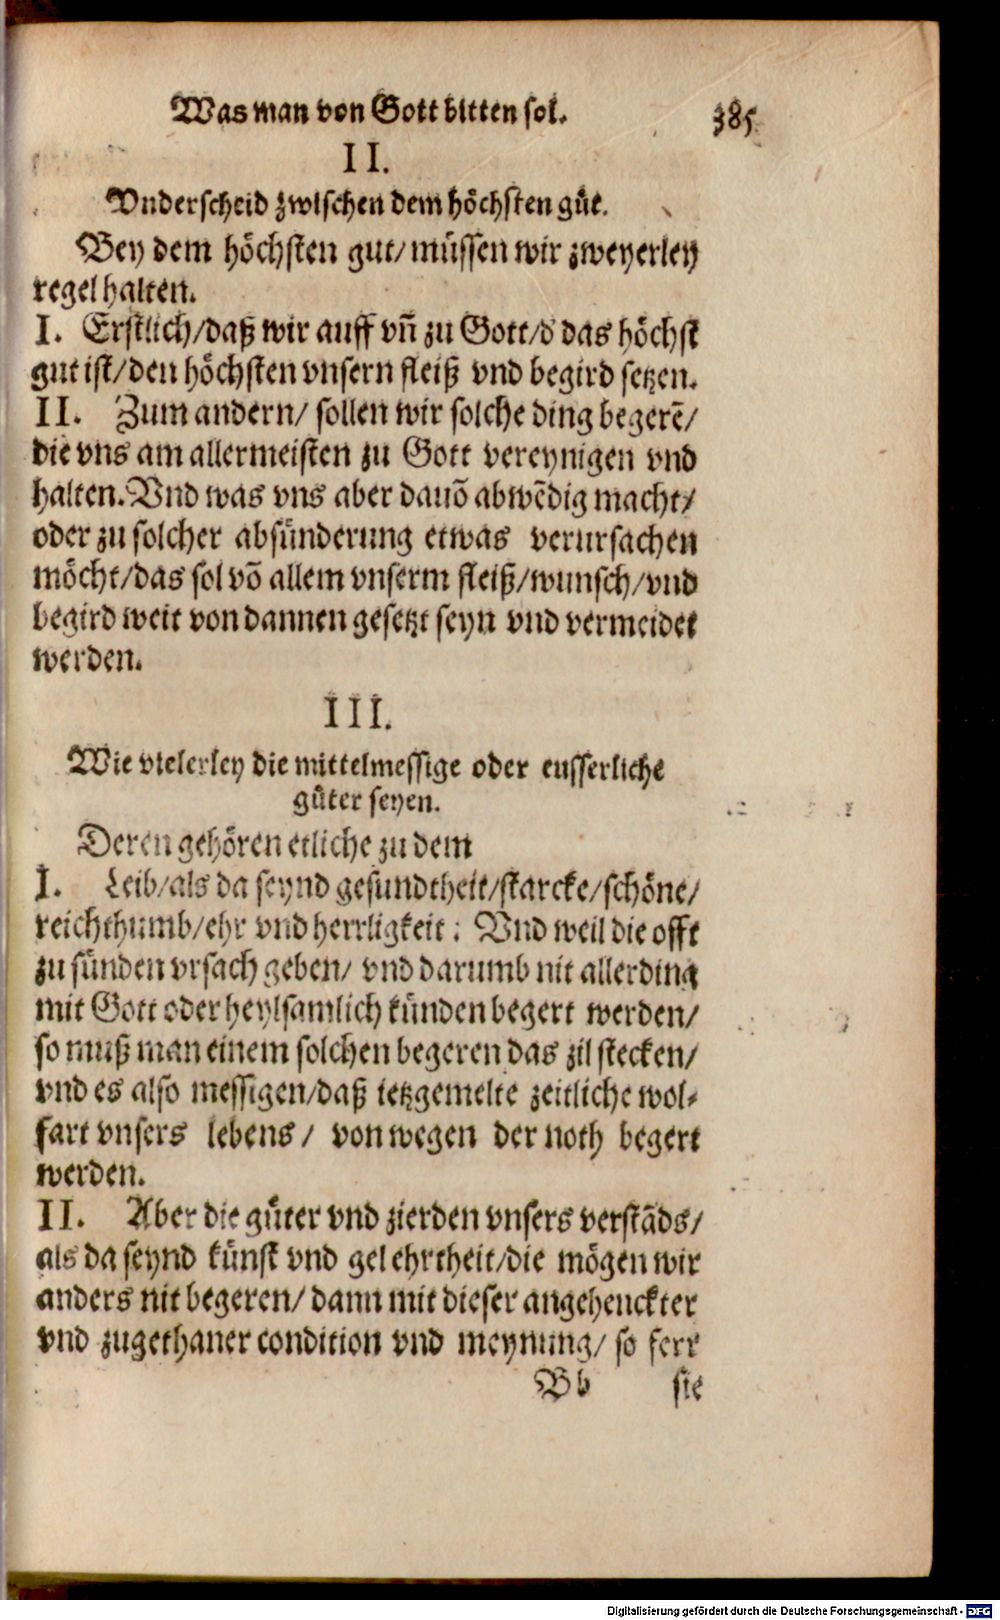 Was man von Gott bitten sol. 385
II.
Vnderscheid zwischen dem höchsten gůt.
Bey dem höchsten gut/ müssen wir zweyerley
regel halten.
I. Erstlich/ daß wir auff vñ zu Gott/ d' das höchst
gut ist/ den höchsten vnsern fleiß vnd begird setzen.
II. Zum andern/ sollen wir solche ding begerẽ/
die vns am allermeisten zu Gott vereynigen vnd
halten. Vnd was vns aber dauõ abwẽdig macht/
oder zu solcher absünderung etwas verursachen
möcht/ das sol võ allem vnserm fleiß/ wunsch/ vnd
begird weit von dannen gesetzt seyn vnd vermeidet
werden.
III.
Wie vielerley die mittelmessige oder eusserliche
güter seyen.
Deren gehören etliche zu dem
I. Leib/ als da seynd gesundtheit/ starcke/ schöne/
reichthumb/ ehr vnd herrligkeit: Vnd weil die offt
zu sünden vrsach geben/ vnd darumb nit allerding
mit Gott oder heylsamlich künden begert werden/
so muß man einem solchen begeren das zil stecken/
vnd es also messigen/ daß ietzgemelte zeitliche wol-
fart vnsers lebens/ von wegen der noth begert
werden.
II. Aber die güter vnd zierden vnsers verstãds/
als da seynd künst vnd gelehrtheit/ die mögen wir
anders nit begeren/ dann mit dieser angehenckter
vnd zugethaner condition vnd meynung/ so ferr
Bb sie
Digitalisierung gefördert durch die Deutsche Forschungsgemeinschaft - DFG